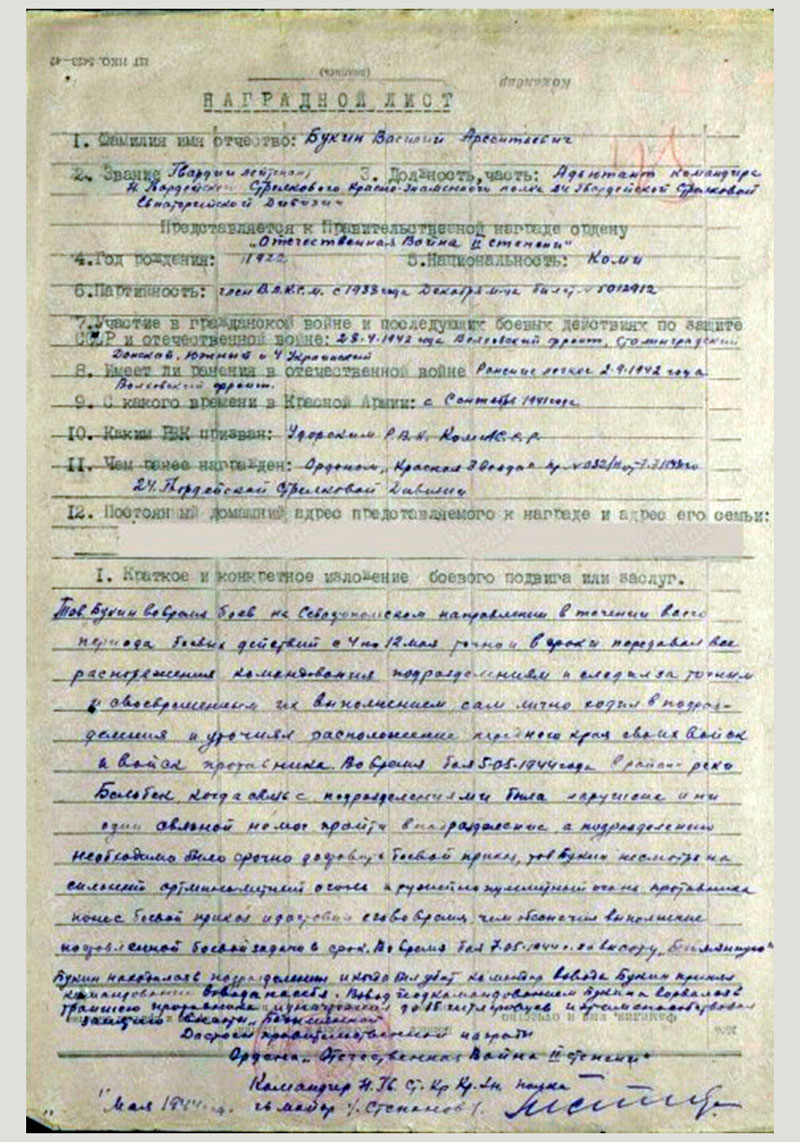 ЦГ НКО. 3423-42
(подпись)
Командир
НАГРАДНОЙ ЛИСТ
1. Фамилия имя отчество: Букин Василий Арсентьевич
2. Звание Гвардии лейтенант 3. Должность, часть: Адъютант командира
Гвардейского Стрелкового Красно-Знаменного полка 24 Гвардейской Стрелковой
Евпаторийской Дивизии
Представляется к Правительственной награде ордену
„Отечественная Война II степени"
4. Год рождения: 1922 5. Национальность: Коми
6. Партийность: член В.Л.К.С.М. с 1938 года Декабря м-ца билет № 5012912
7. Участие в гражданской войне и последующих боевых действиях по защите
СССР и отечественной войне: 28.4.1942 года Волховский фронт, Сталинградский
Донской, Южный и 4 Украинский
8. Имеет ли ранения в отечественной войне Ранение легкое 2.9.1942 года
Волховский фронт.
9. С какого времени в Красной Армии: с Сентября 1941 года
10. Каким РВК призван: Удорским Р.В.К. Коми АССР
11. Чем ранее награжден: Орденом „Красная Звезда"
24. Гвардейской Стрелковой Дивизии
12. Постоянный домашний адрес представляемого к награде и адрес его семьи:
I. Краткое и конкретное изложение боевого подвига или заслуг.
Тов. Букин вовремя боев на Севастопольском направлении в течении всего
периода боевых действий с 4 по 12 мая точно и в сроки передавал все
распоряжения командования подразделениям и следил за точным
и своевременным их выполнением, сам лично ходил в подраз-
деления и уточнял расположение переднего края своих войск
и войск противника. Во время боя 5.05.1944 года в районе реки
Бельбек, когда связь с подразделениями была нарушена и ни
один связной не мог пройти в подразделение, а подразделению
необходимо было срочно доставить боевой приказ, тов Букин несмотря на
сильный артминометный огонь и ружейно пулеметный огонь противника
понес боевой приказ и доставил его во время, чем обеспечил выполнение
поставленной боевой задачи в срок. Во время боя 7.05.1944 г. за высоту „Безымянную"
Букин находился в подразделении и когда был убит командир взвода Букин принял
командование взвода на себя. Взвод под командованием Букина ворвался в
траншею противника уничтожил до 15 гитлеровцев и этим способствовал
занятию высоты Безымянной
Достоин правительственной награды
Ордена „Отечественная Война II степени"
Командир Гв. Ст. Кр. Зн. полка
„ " Мая 1944 год. гв майор /Степанов/